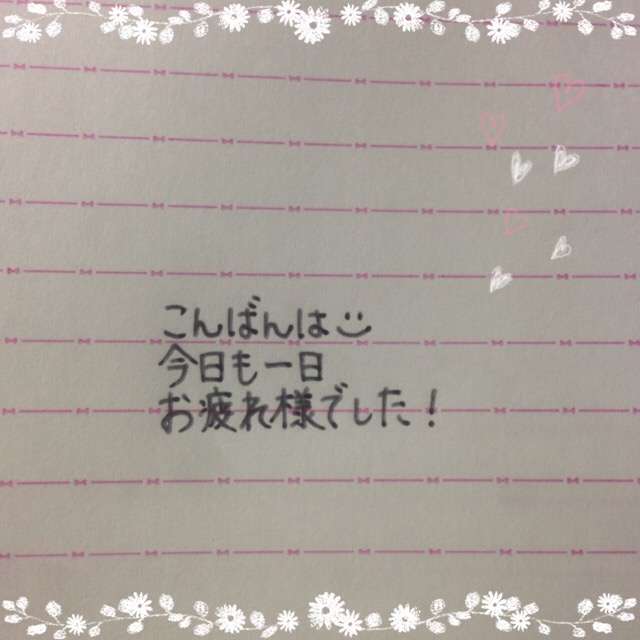 こんばんは
今日も一日
お疲れ様でした！